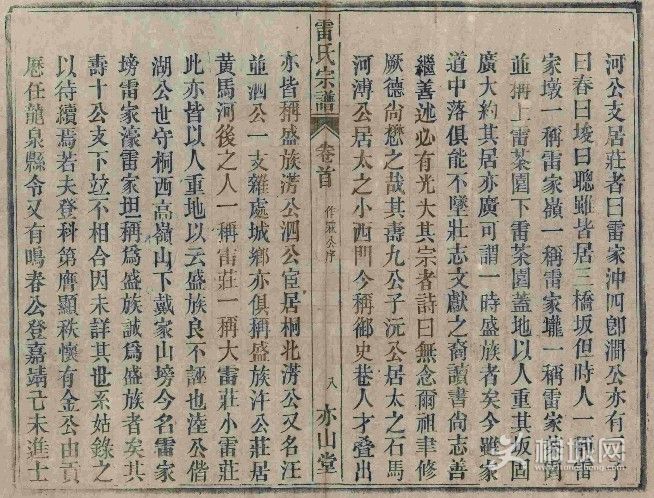 河公支居莊者曰雷家沖四郎澗公亦有
曰春曰堎曰聰雖皆居三橋坂但時人一稱雷
家墩一稱雷家嶺一稱雷家壠一稱雷家
並稱上雷菜園下雷菜園蓋地以人重其坂固
廣大約其居亦廣可謂一時盛族者矣今雖家
道中落俱能不墜壯志文獻之裔讀書尚志善
繼善述必有光大其宗者詩曰無念爾祖聿修
厥德尚懋之哉其壽九公子沅公居太之石馬
河溥公居太之小西門今稱御史巷人才叠出
雷氏宗譜
卷首
八
亦山堂
亦皆稱盛族澇公泗公宦居桐北澇公又名汪
並泗公一支雜處城鄉亦俱稱盛族汗公莊居
黃馬河後之人一稱雷莊一稱大雷莊小雷莊
此亦皆以人重地以云盛族良不誣也淕公偕
湖公世守桐西高嶺山下戴家山塝今名雷家
塝雷家濠雷家坦一稱爲盛族誠爲盛族者矣其
壽十公支下並不相合因未詳其世系姑錄之
以待續焉若夫登科第膺顯秩懷有金公由貢
歷任龍泉縣令又有鳴春公登嘉靖己未進士